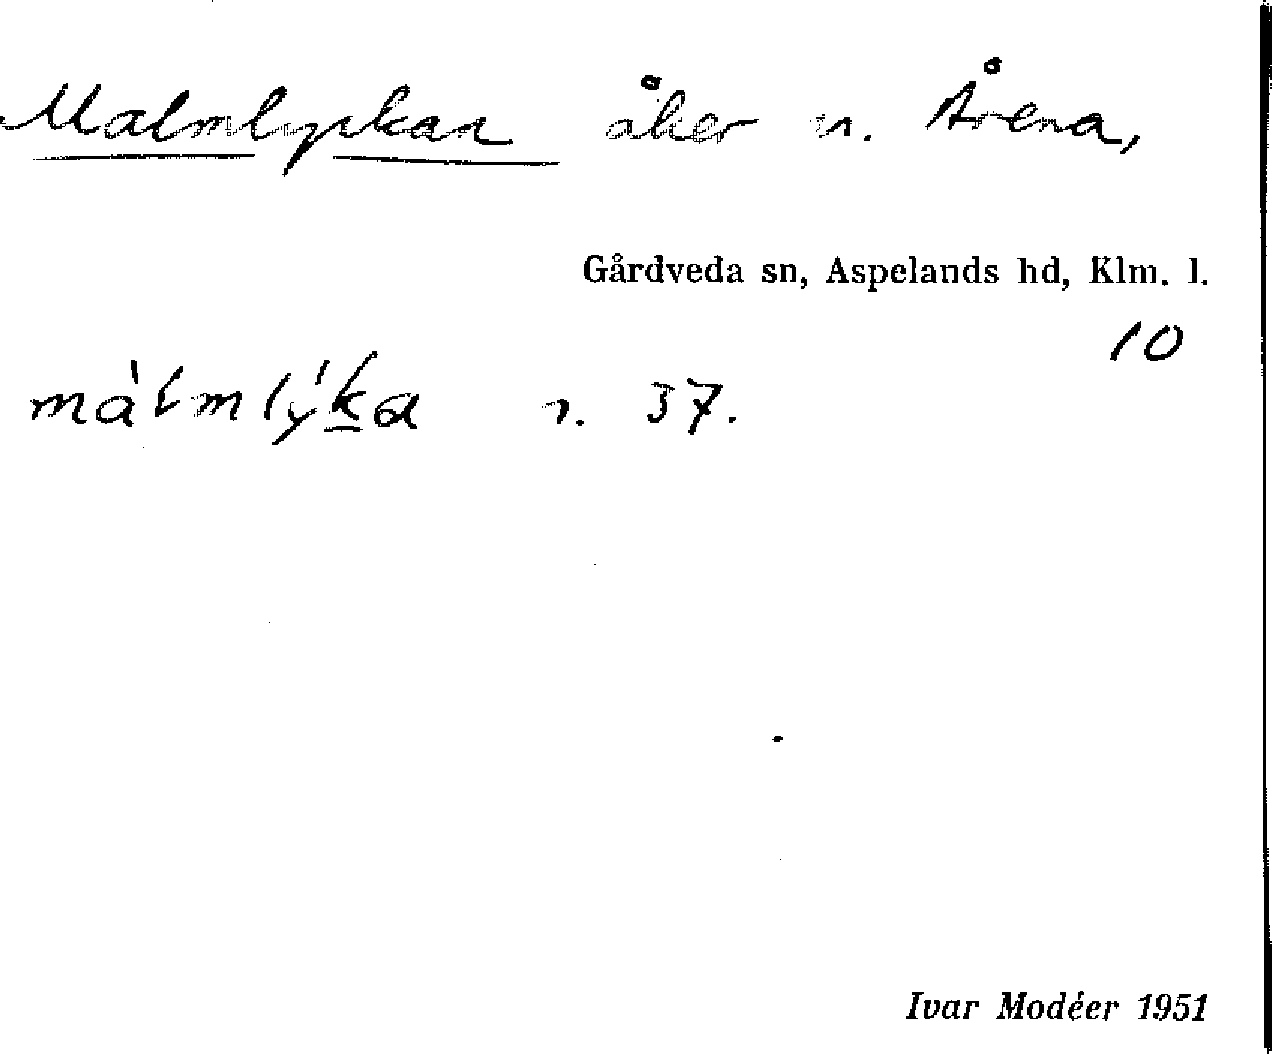 Malmlyckan åker n. Årena,
Gårdveda sn, Aspelands hd, Klm. l.
10
màlmlýka n. 37.
Ivar Modéer 1951